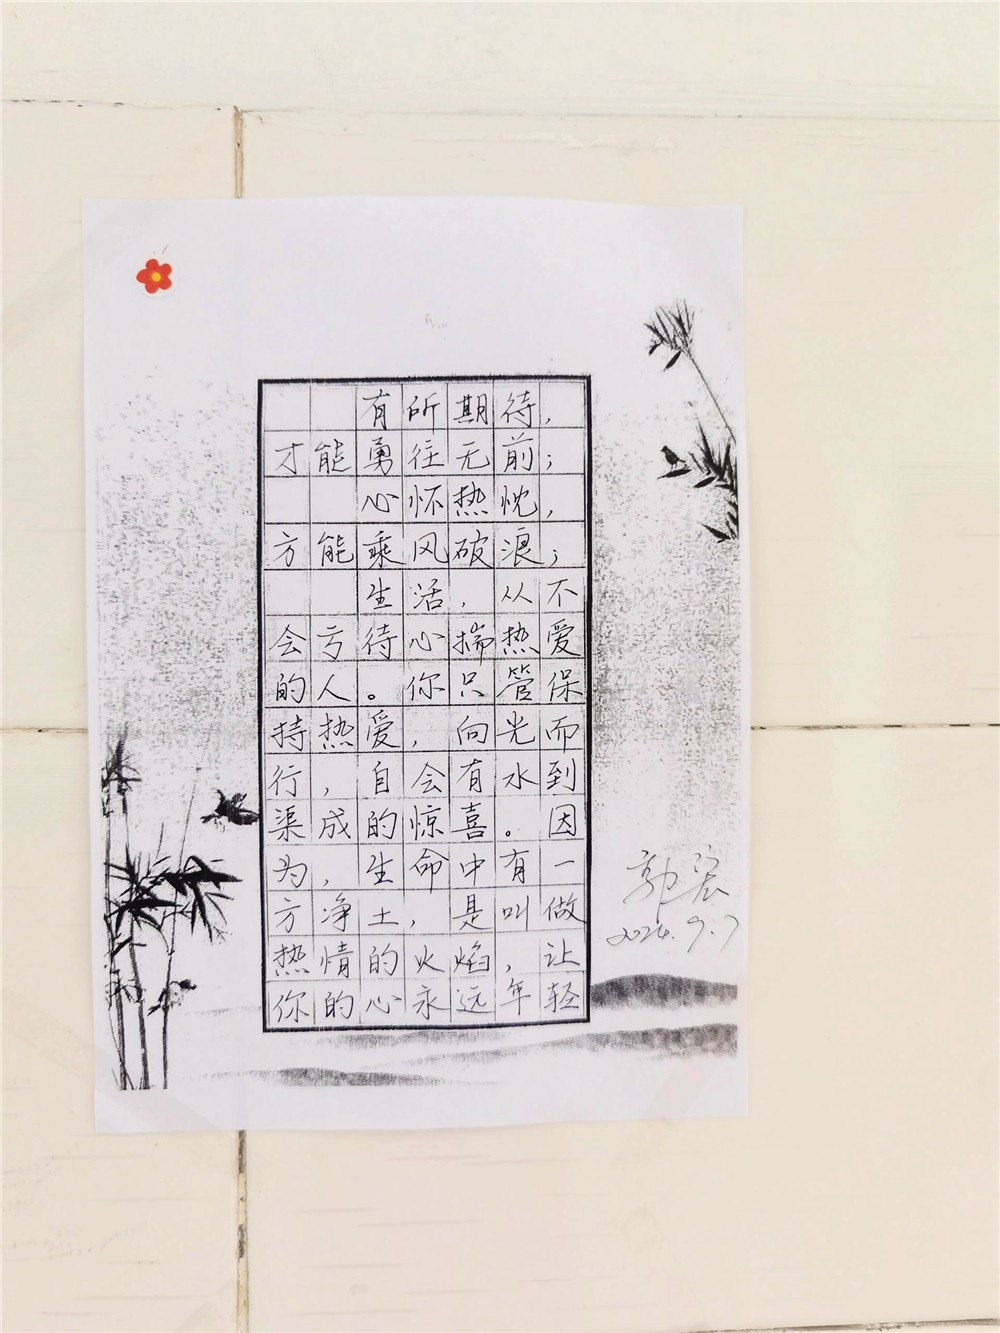 有所期待，
才能勇往无前；
心怀热忱，
方能乘风破浪；
生活，从不
会亏待心揣热爱
的人。你只管保
持热爱，向光而
行，自会有水到
渠成的惊喜。因
为，生命中有一
方净土，是叫做
热情的火焰，让
你的心永远年轻
2024.9.7